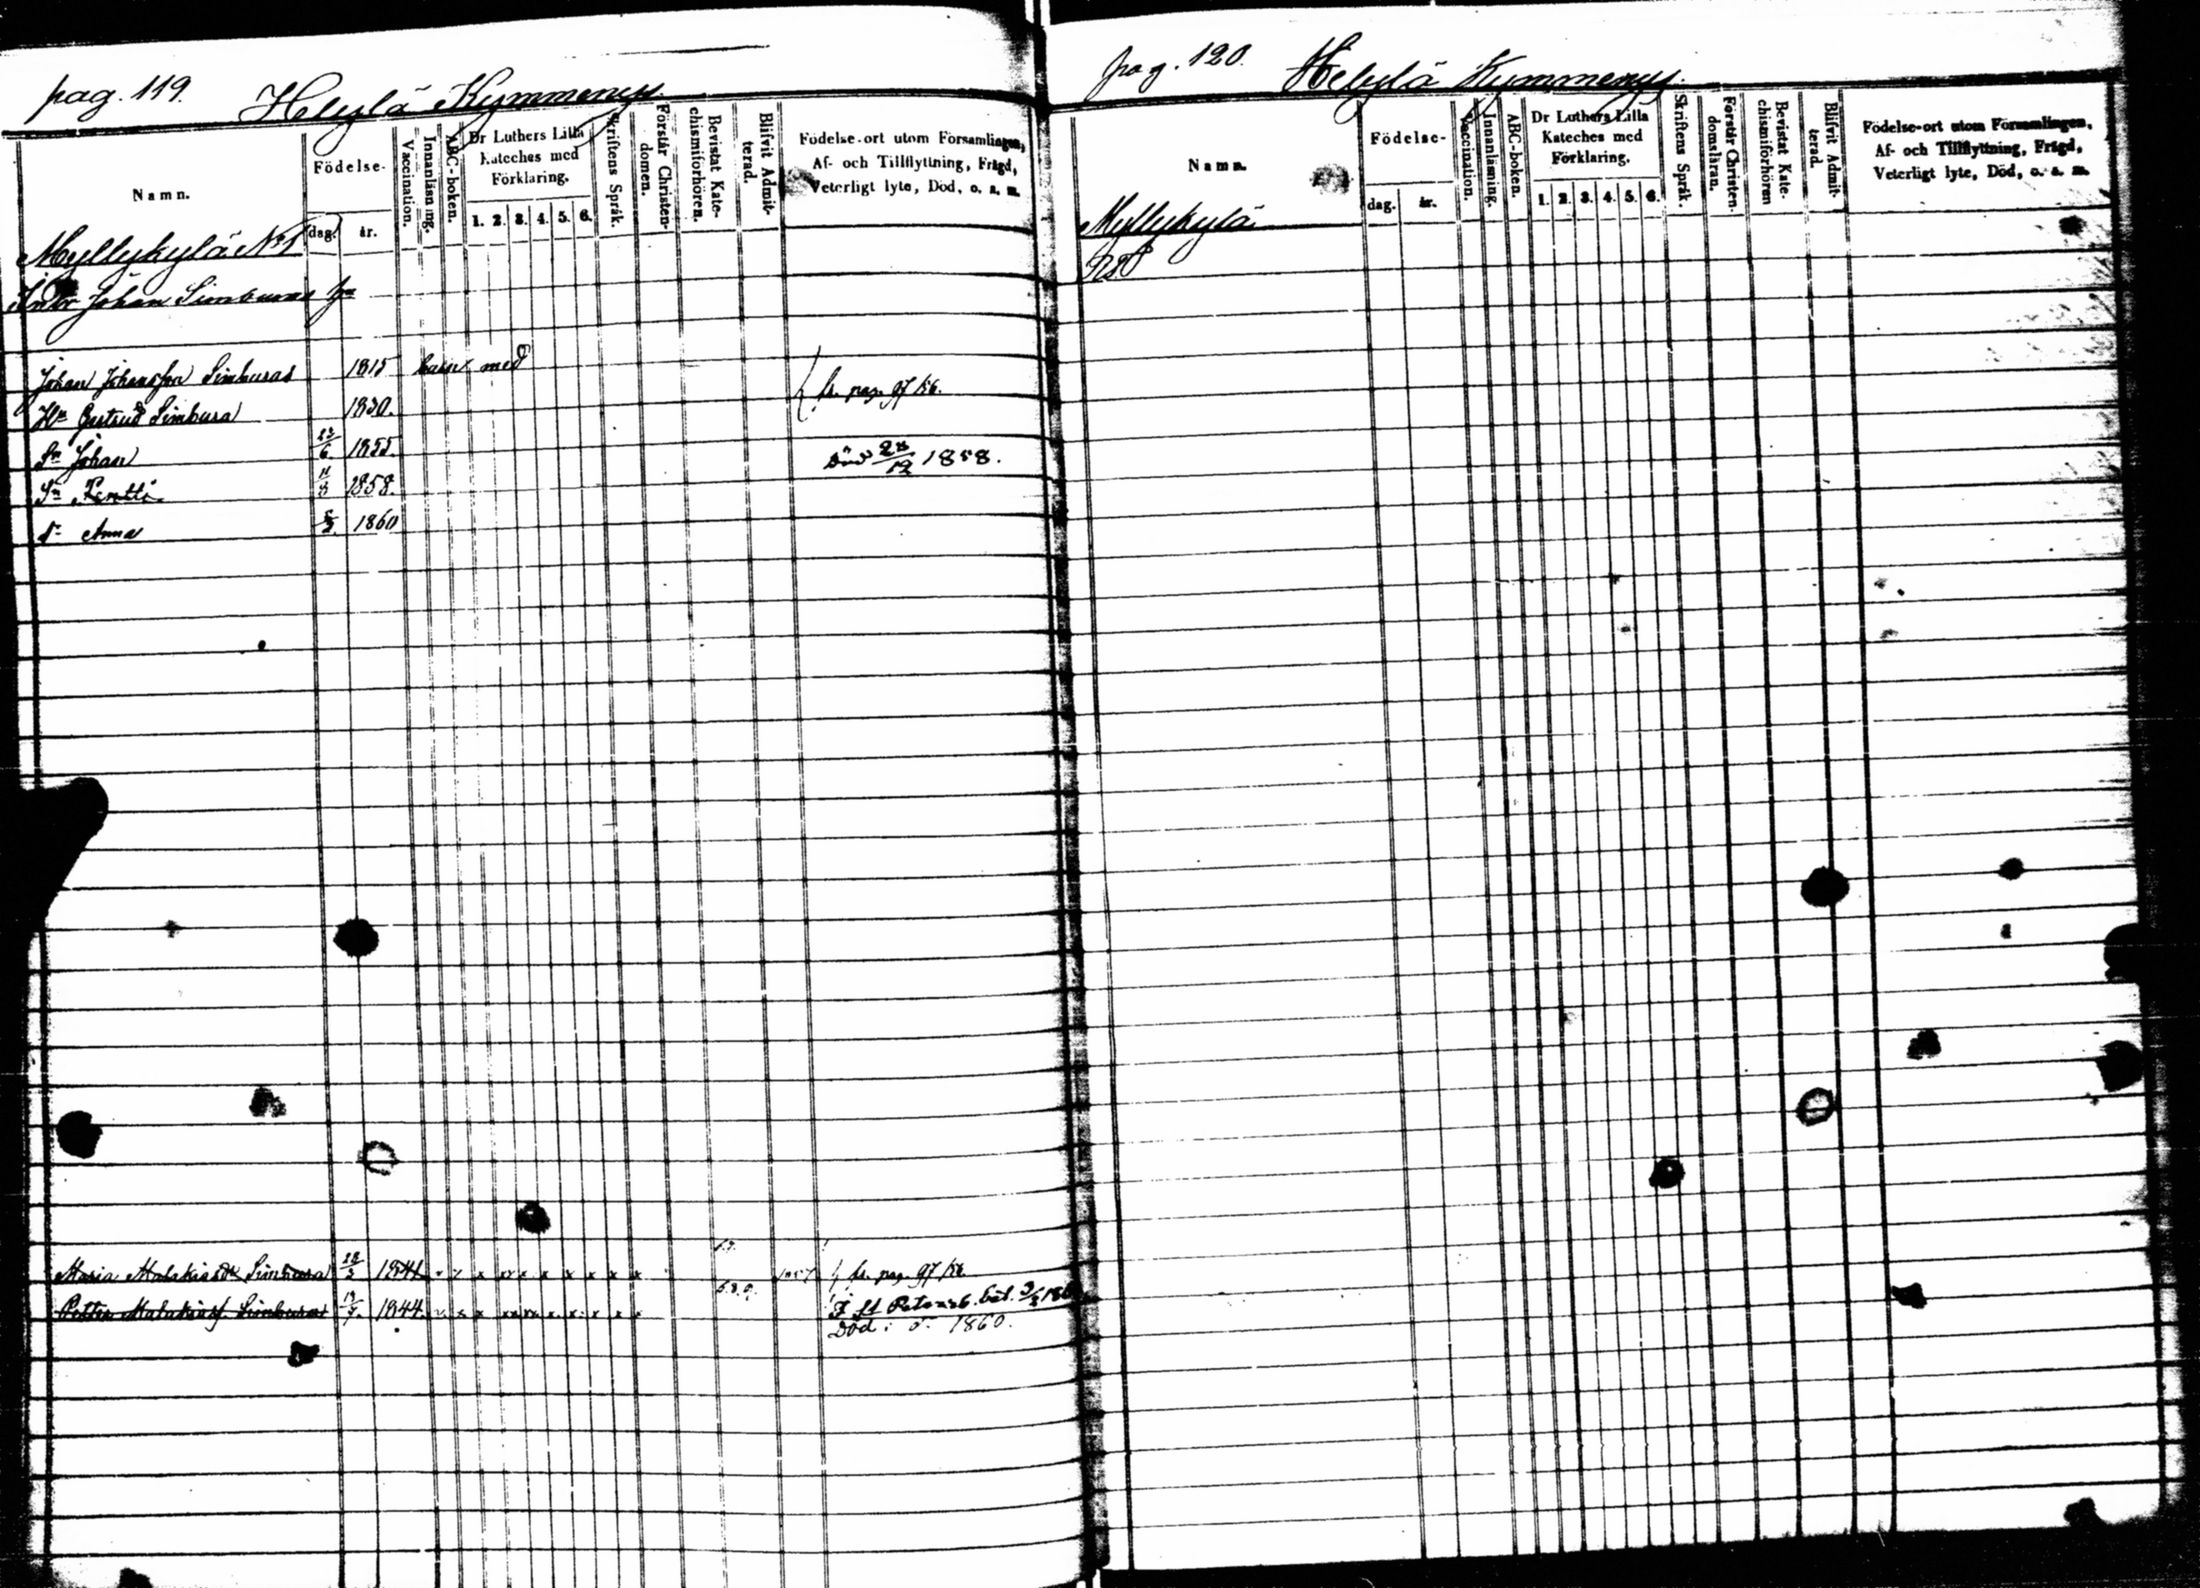 pag. 119. Helylä Kymmenys.
Namn.
Födelse-
dag. år.
Vaccination.
Innanläsning.
ABC-boken.
Dr Luthers Lilla
Kateches med
Förklaring.
1. 2. 3. 4. 5. 6.
Skriftens Språk.
Förstår Christen-
domen.
Bevistat Kate-
chismiförhören.
Blifvit Admit-
terad.
Födelse-ort utom Församlingen,
Af- och Tillflyttning, Frägd,
Veterligt lyte, Död, o. s. m.
Myllykylä No 1
Johan Simburas
Johan Johansson Simburas 1815 med
Hu Gertrud Simbura 1830. fr. pag. 97/56.
Sn Johan 1855. Död 1858.
Sn 11/3 1858.
Anna 1860
Maria Malakiasdr Simbura 1844. fr. pag. 97/56
Petter Malakiass. Simbura 1844.
Död i 1860.
pag. 120. Helylä Kymmenys.
Namn.
Födelse-
dag. år.
Vaccination.
Innanläsning.
ABC-boken.
Dr Luthers Lilla
Kateches med
Förklaring.
1. 2. 3. 4. 5. 6.
Skriftens Språk.
Förstår Christen-
domsläran.
Bevistat Kate-
chismiförhören
Blifvit Admit-
terad.
Födelse-ort utom Församlingen,
Af- och Tillflyttning, Frägd,
Veterligt lyte, Död, o. s. m.
Myllykylä